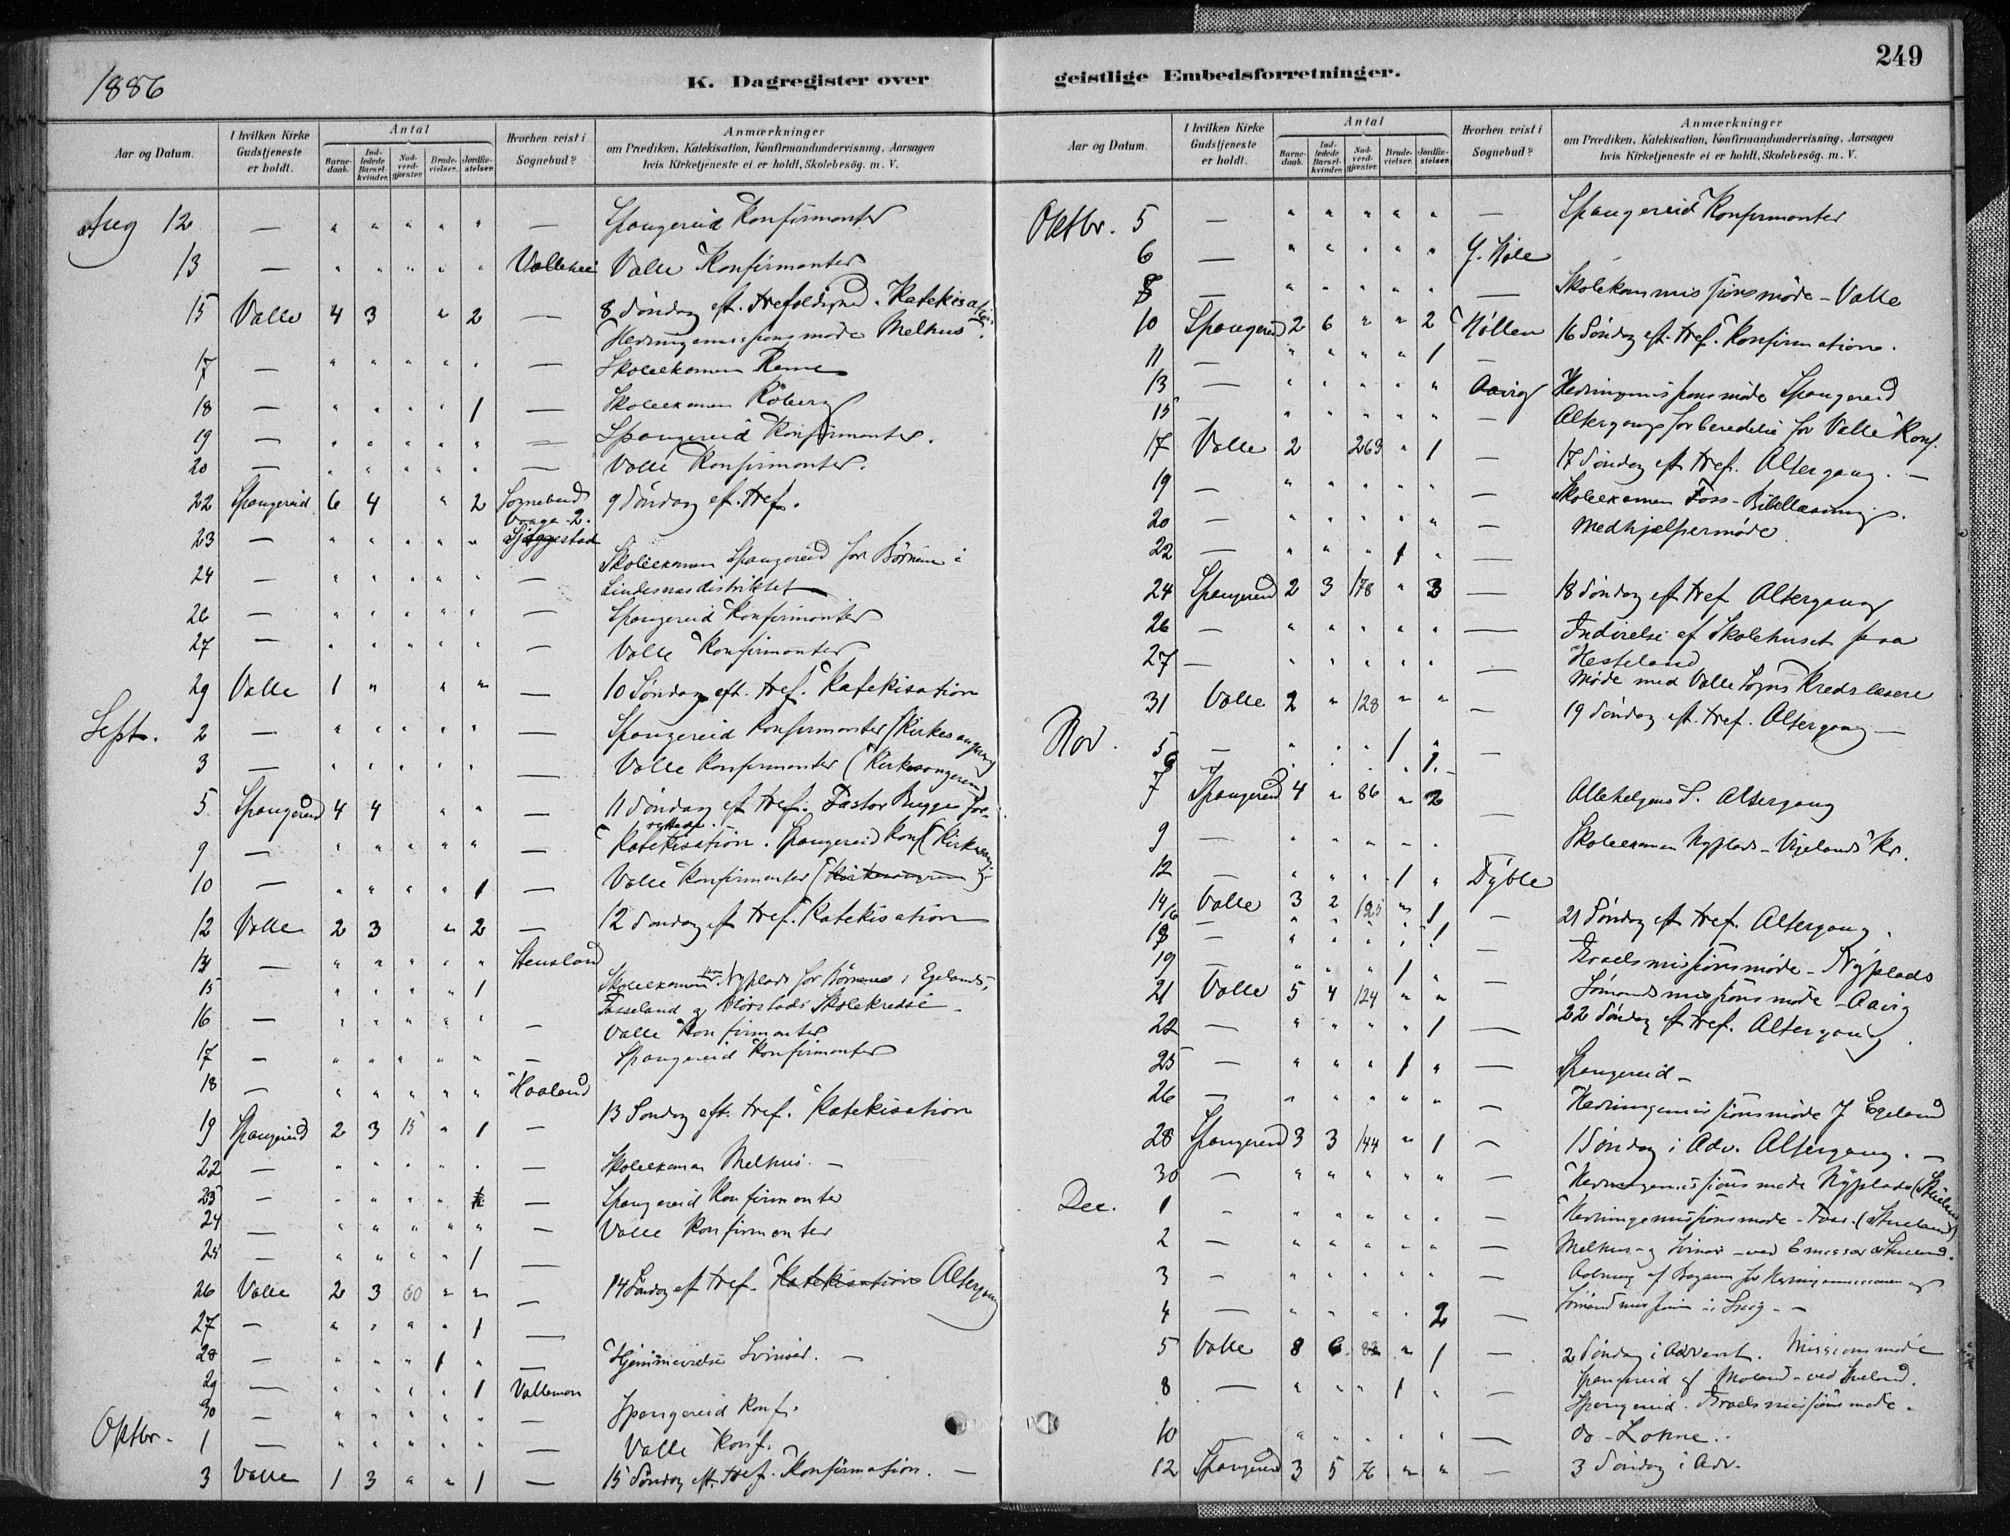 1886
K. Dagregister over
Aar og Datum.
I hvilken Kirke Gudstjeneste er holdt.
Antal
Barnedaab.
Indledede Barselkvinder.
Nadverdgjæster.
Brudevielser.
Jordfæstelser.
Hvorhen reist i Sognebud?
Anmærkninger
om Prædiken, Katekisation, Konfirmandundervisning, Aarsagen
hvis Kirketjeneste ei er holdt, Skolebesög. m. V.
Aug 12 — " " " " " — Spangereid Konfirmanter
13 — " " " " " Vallehei Valle Konfirmanter
15 Valle 4 3 " 2 — 8 Söndag eft. Trefoldighed. Katekisation
Hedningemissionsmöde Melhus.
17 — " " " " " — Skoleexamen Reme
18 — " " " " 1 — Skoleexamen Röberg
19 — " " " " " — Spangereid Konfirmanter.
20 — " " " " " — Valle Konfirmanter.
22 Spangereid 6 4 " 2 Sognebud Vaage 2. 9 Söndag eft. Tref.
23 — " " " " "
24 — " " " " " — Skoleexamen Spangereid for Börnene i
Lindesnæsdistriktet
26 — " " " " " — Spangereid Konfirmanter
27 — " " " " " — Valle Konfirmanter
29 Valle 1 " " " — 10 Söndag eft. Tref. Katekisation
Sept. 2 — " " " " " — Spangereid Konfirmanter (Kirkesangeren)
3 — " " " " " — Valle Konfirmanter (Kirkesangeren)
5 Spangereid 4 4 " " 11 Söndag eft Tref. Pastor Bugge for-
rettede.
9 — " " " " " — Katekisation. Spangereid Konf (Kirkesang.
10 — " " " " 1 — Valle Konfirmanter (Kirkesangeren)
12 Valle 2 3 " 2 — 12 Söndag eft Tref. Katekisation
14 — " " " " " Stensland
15 " " " " 1 Skoleexamen Nyplads for Börnene i Egelands,
Fasseland og Skolekredse
16 — " " " " " — Valle Konfirmanter
17 — " " " " " — Spangereid Konfirmanter
18 — " " " " " Haaland
19 Spangereid 2 3 15 " 1 — 13 Söndag eft. Tref. Katekisation
22 — " " " " " — Skoleexamen Melhus. —
23 — " " " " — Spangereid Konfirmanter
24 — " " " " " — Valle Konfirmanter
25 " " " " 1 —
26 Valle 2 3 60 " " — 14 Söndag eft Tref. Katekisation Altergang
27 — " " " " 1 —
28 — " " " 1 " — Hjemmevielse Svinör. —
29 — " " " " 1 Vallemoen
30 — " " " " " Spangereid Konf.
Oktbr. 1 — " " " " " — Valle Konf.
3 Valle 1 3 " " 1 — 15 Söndag eft. Tref. Konfirmation. —
geistlige Embedsforretninger.
249
Aar og Datum.
I hvilken Kirke Gudstjeneste er holdt.
Antal
Barnedaab.
Indledede Barselkvinder.
Nadverdgjæster.
Brudevielser.
Jordfæstelser.
Hvorhen reist i Sognebud?
Anmærkninger
om Prædiken, Katekisation, Konfirmandundervisning, Aarsagen
hvis Kirketjeneste ei er holdt, Skolebesög. m. V.
Oktbr. 5 — " " " " " — Spangereid Konfirmanter
6 — " " " " " Y. Höle
8 — " " " " " — Skolekommissionsmöde – Valle
10 Spangereid 2 6 " " 2 Höllen 16 Söndag eft. Tref. Konfirmation.
11 — " " " " 1 —
13 — " " " " " Aavig Hedningemissionsmöde Spangereid
15 " " " " " — Altergangsforberedelse for Valle Konf.
17 Valle 2 263 " 1 — 17 Söndag eft Tref. Altergang. —
19 — " " " " " — Skoleexamen Foss – Bibellæsning.
20 — " " " " " — Medhjælpermöde.
22 — " " " 1 " —
24 Spangereid 2 3 178 " 3 — 18 Söndag eft Tref Altergang
26 — " " " " " — Indvielse af Skolehuset paa
Hesteland
27 — " " " " " — Möde med Valle Sogns Kredslæsere
31 Valle 2 " 128 " " — 19 Söndag eft. Tref. Altergang —
Nov. 5 — " " " 1 " —
6 " " " " 1 –
7 Spangereid 4 " 86 " 2 — Allehelgens S. Altergang
9 — " " " " " Skoleexamen Nyplads – Vigelands Kr.
12 — " " " 1 " Dyble
14 Valle 3 2 125 " 1 — 21 Söndag eft Tref. Altergang.
16 " " " " 1
18 — " " " " " — Israelsmissionsmöde – Nyplads
19 " " " 1 " — Sömandsmissionsmöde – Aavig
21 Valle 5 4 124 " " 22 Söndag eft Tref. Altergang.
22 — " " " " 1 —
25 — " " " 1 " — Spangereid –
26 — " " " " " — Hedningemissionsmöde Y Egeland
28 Spangereid 3 3 144 " 1 — 1 Söndag i Adv. Altergang. —
30 — " " " " " — Hedningemissionsmöde Nyplads
Dec. 1 — " " " " " — Hedningemissionsmöde – Foss.
2 — " " " " " — Melhus og Svinör – ved Emissær
3 — " " " " " — Aabning af Bazaren for Hedningemissionen og
4 — " " " " 2 — Sömandsmissionen i Snig –
5 Valle 8 6 82 " 1 — 2 Söndag i Advent. Missionsmöde
8 — " " " 1 " — Spangereid
Spangereid. Israelsmissionsmöde.
10 " " " " " — do – Lohne.
12 Spangereid 3 5 76 " " — 3 Söndag i Adv.